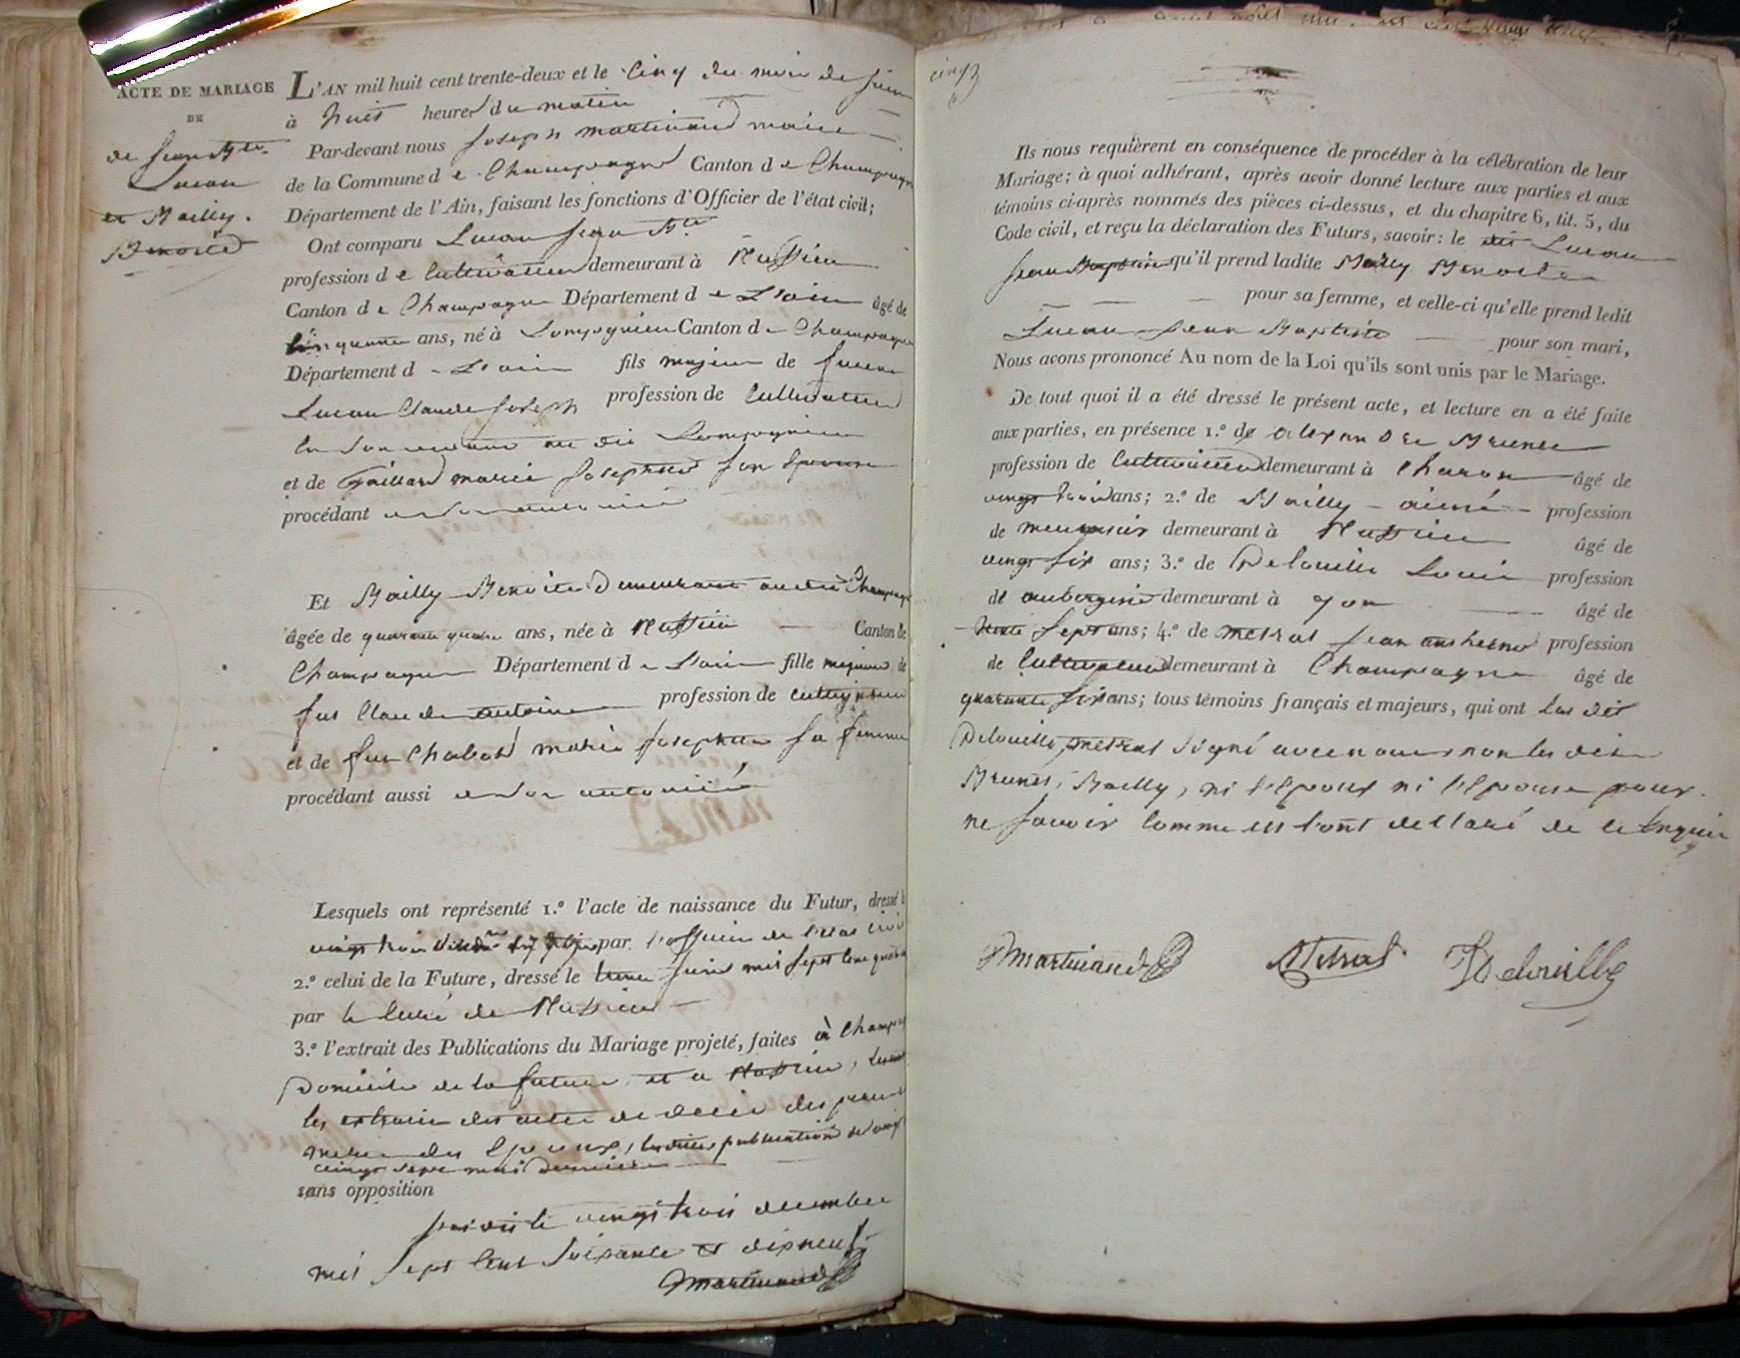 ACTE DE MARIAGE
DE
de Jean Bte
Lucan
et Bailly
Benoite
L'AN mil huit cent trente-deux et le cinq du mois de juin
à huit heures du matin
Par-devant nous Joseph Martinand maire
de la Commune de Champagne Canton de Champagne
Département de l'Ain, faisant les fonctions d'Officier de l'état civil;
Ont comparu Lucan Jean Bte
profession de Cultivateur demeurant à
Canton de Champagne Département de L'ain âgé de
cinquante ans, né à Lompnieu Canton de Champagne
Département de L'ain fils majeur de
Lucan Claude Joseph profession de Cultivateur
en son vivant au dit Lompnieu
et de Gaillard marie Josephte son Epouse
procédant
Et Bailly Benoite Demeurant au dit Champagne
âgée de quarante quatre ans, née à Canton de
Champagne Département de L'ain fille majeure de
feu Claude antoine profession de cultivateur
et de feu Chabod marie Josephte sa femme
procédant aussi
Lesquels ont représenté 1.º l'acte de naissance du Futur, dressé le
vingt trois par l'officier de l'etat civil
2.º celui de la Future, dressé le juin mil sept cent quatre
par le Curé de
3.º l'extrait des Publications du Mariage projeté, faites à Champagne
Domicile de la future et a
les extraits des actes de décès des pere et
mere des Epoux, lesdites publications
vingt sept mai dernier
sans opposition
vingt trois decembre
mil sept cent soixante et dix neuf
Martinand
cinq 3
Ils nous requièrent en conséquence de procéder à la célébration de leur
Mariage; à quoi adhérant, après avoir donné lecture aux parties et aux
témoins ci-après nommés des pièces ci-dessus, et du chapitre 6, tit. 5, du
Code civil, et reçu la déclaration des Futurs, savoir: le dit Lucan
Jean Baptiste qu'il prend ladite Bailly Benoite
pour sa femme, et celle-ci qu'elle prend ledit
Lucan Jean Baptiste pour son mari,
Nous avons prononcé Au nom de la Loi qu'ils sont unis par le Mariage.
De tout quoi il a été dressé le présent acte, et lecture en a été faite
aux parties, en présence 1.º de alexandre Brunet
profession de Cultivateur demeurant à Charon âgé de
vingt trois ans; 2.º de Bailly aimé profession
de menuisier demeurant à âgé de
vingt six ans; 3.º de Delouille Louis profession
de aubergiste demeurant à yon âgé de
trente sept ans; 4.º de metral Jean anthelme profession
de Cultivateur demeurant à Champagne âgé de
quarante six ans; tous témoins français et majeurs, qui ont Les dit
Delouille, metral signé avec nous non les dits
Brunet, Bailly, ni l'Epoux ni l'Epouse pour
ne savoir comme ils l'ont declaré de ce Enquis
Martinand Metral Delouille